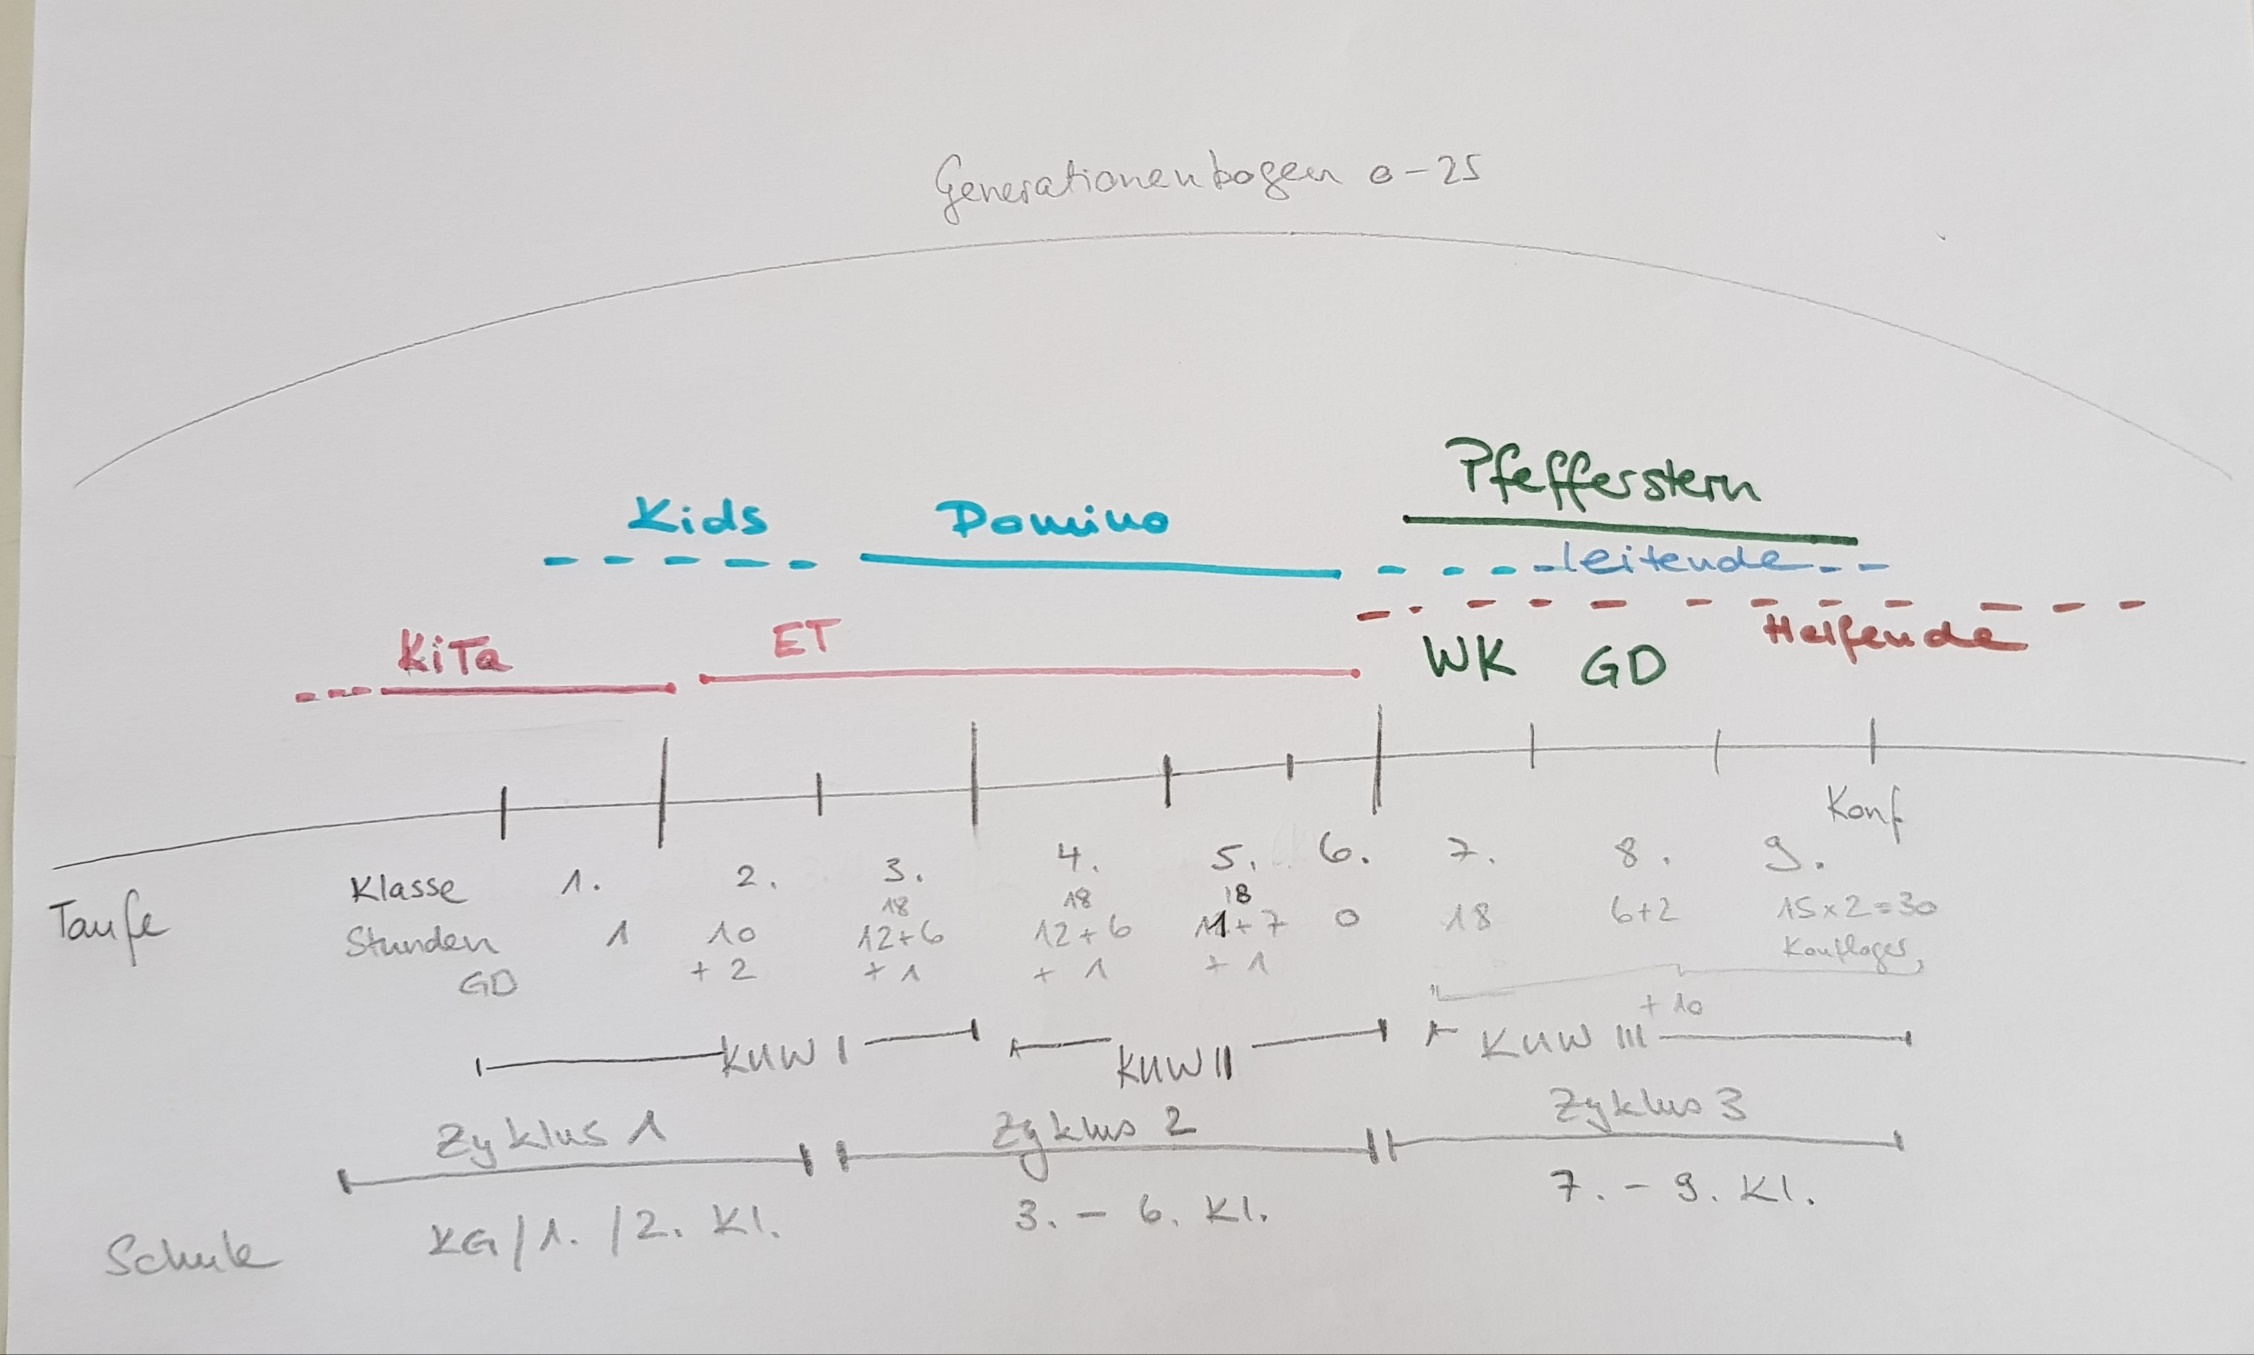 Generationenbogen 0-25
Pfefferstern
Kids Domino
Leitende
KiTa ET WK GD Helfende
Konf
Klasse 1. 2. 3. 4. 5. 6. 7. 8. 9.
18 18 18
Taufe
Stunden 1 10 12+6 12+6 11+7 0 18 6+2 15x2=30
GD +2 +1 +1 +1 Konflager,
+10
KUW I KUW II KUW III
Zyklus 1 Zyklus 2 Zyklus 3
Schule KG/1./2. Kl. 3.-6. Kl. 7.-9. Kl.